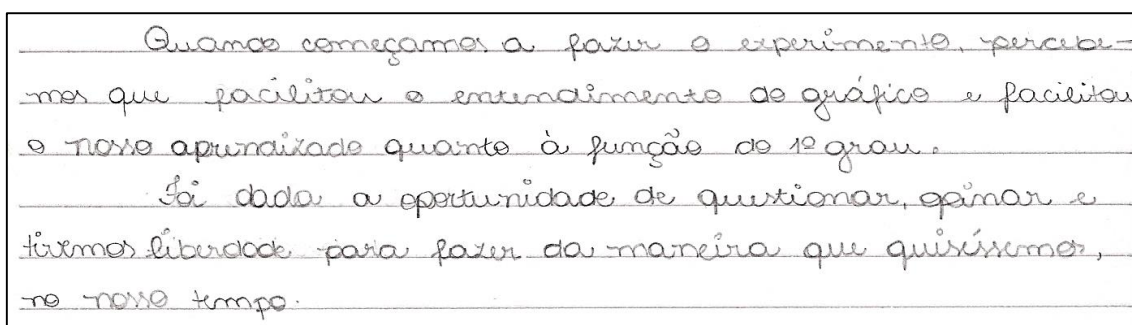 Quando começamos a fazer o experimento, percebe-
mos que facilitou o entendimento do gráfico e facilitou
o nosso aprendizado quanto à função do 1º grau.
Foi dada a oportunidade de questionar, opinar e
tivemos liberdade para fazer da maneira que quiséssemos,
no nosso tempo.